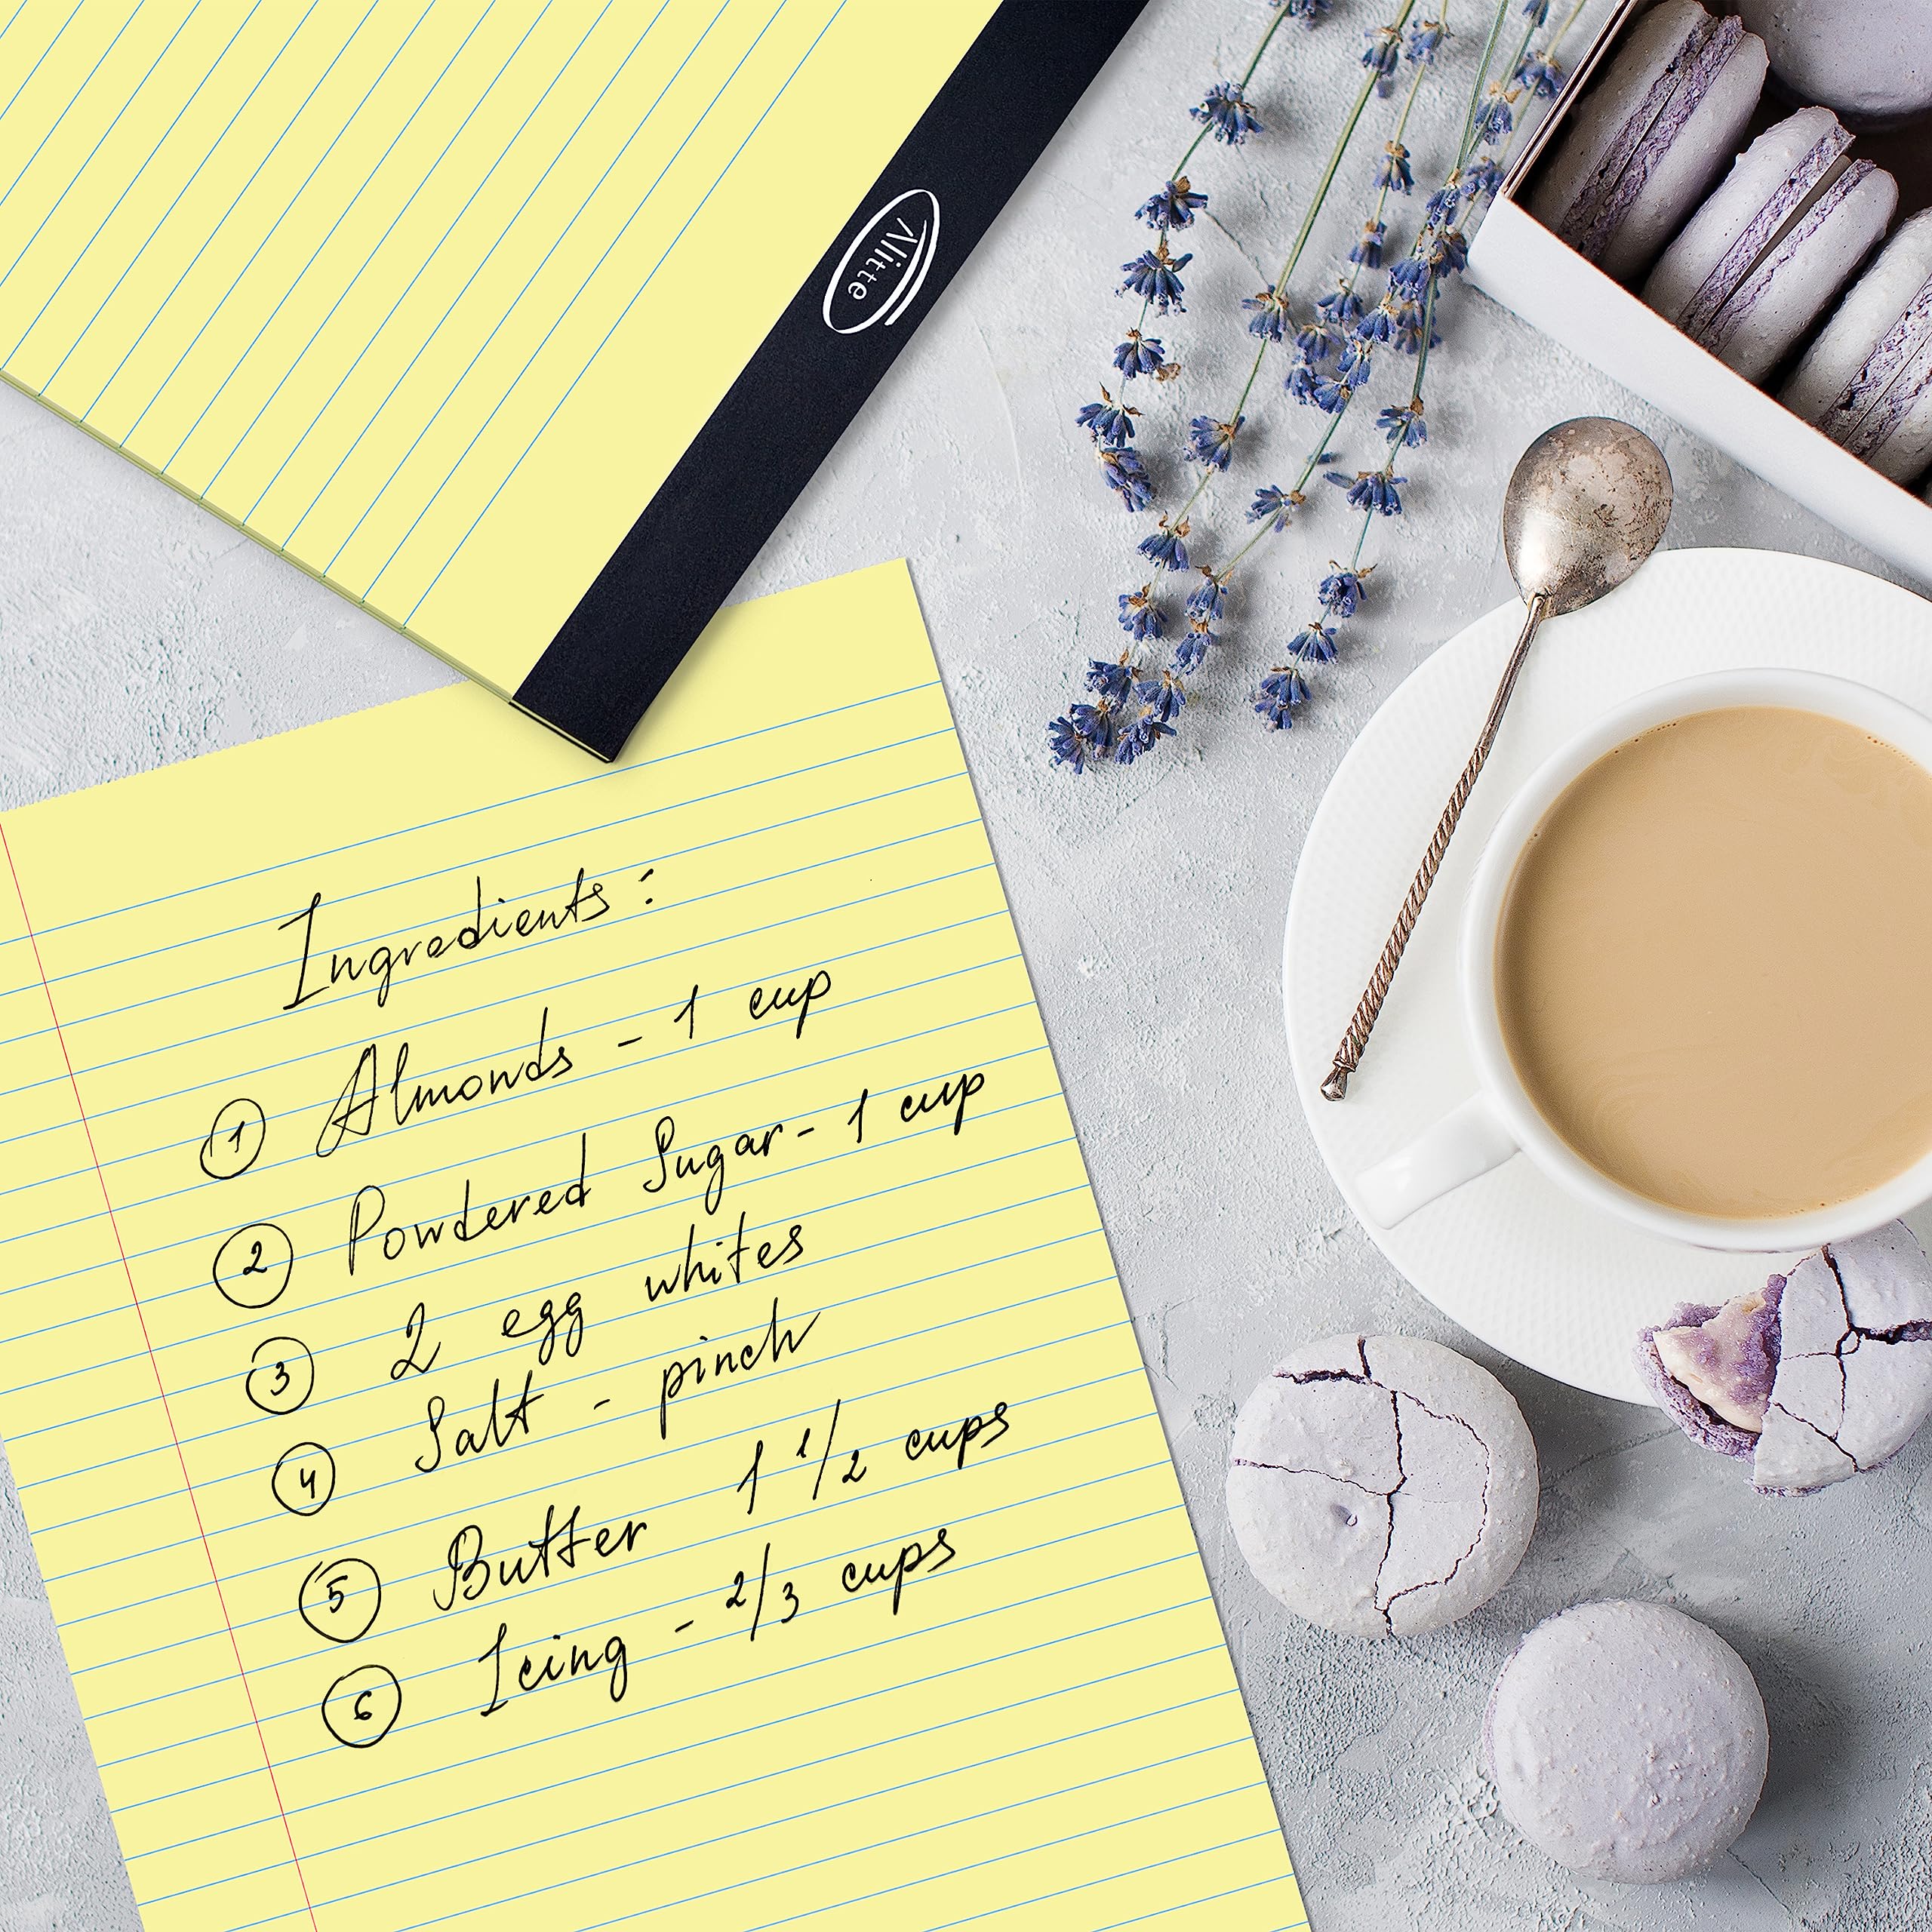 Alitte
Ingredients:
1 Almonds - 1 cup
2 Powdered Sugar - 1 cup
3 2 egg whites
4 Salt - pinch
5 Butter 1 1/2 cups
6 Icing - 2/3 cups